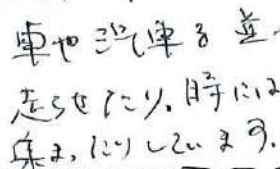 車や汽車を並
走らせたり、時には
集まったりしています。